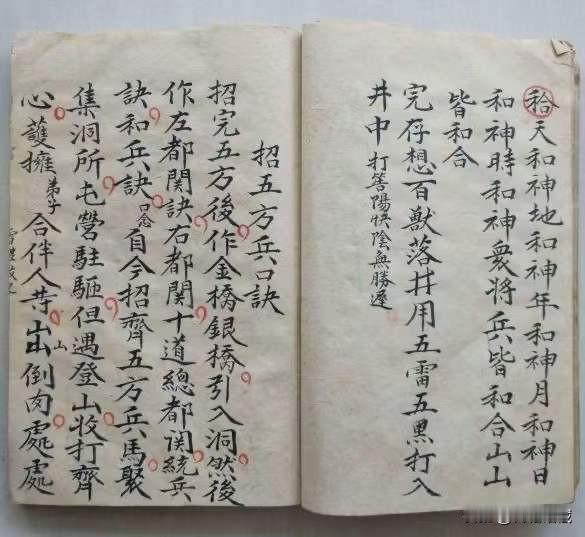 天和神地和神年和神月和神日
和神時和神衆將兵皆和合山山
皆和合
完存想百獸落井用五雷五黑打入
井中打筶陽快陰無勝遲
招五方兵口訣
招完五方後作金橋銀橋引入洞然後
作左都関訣右都関十道總都関統兵
訣和兵訣口念自今招齊五方兵馬聚
集洞所屯營駐駔但遇登山收打齊
心護擁弟子合伴人等山山倒肉處處